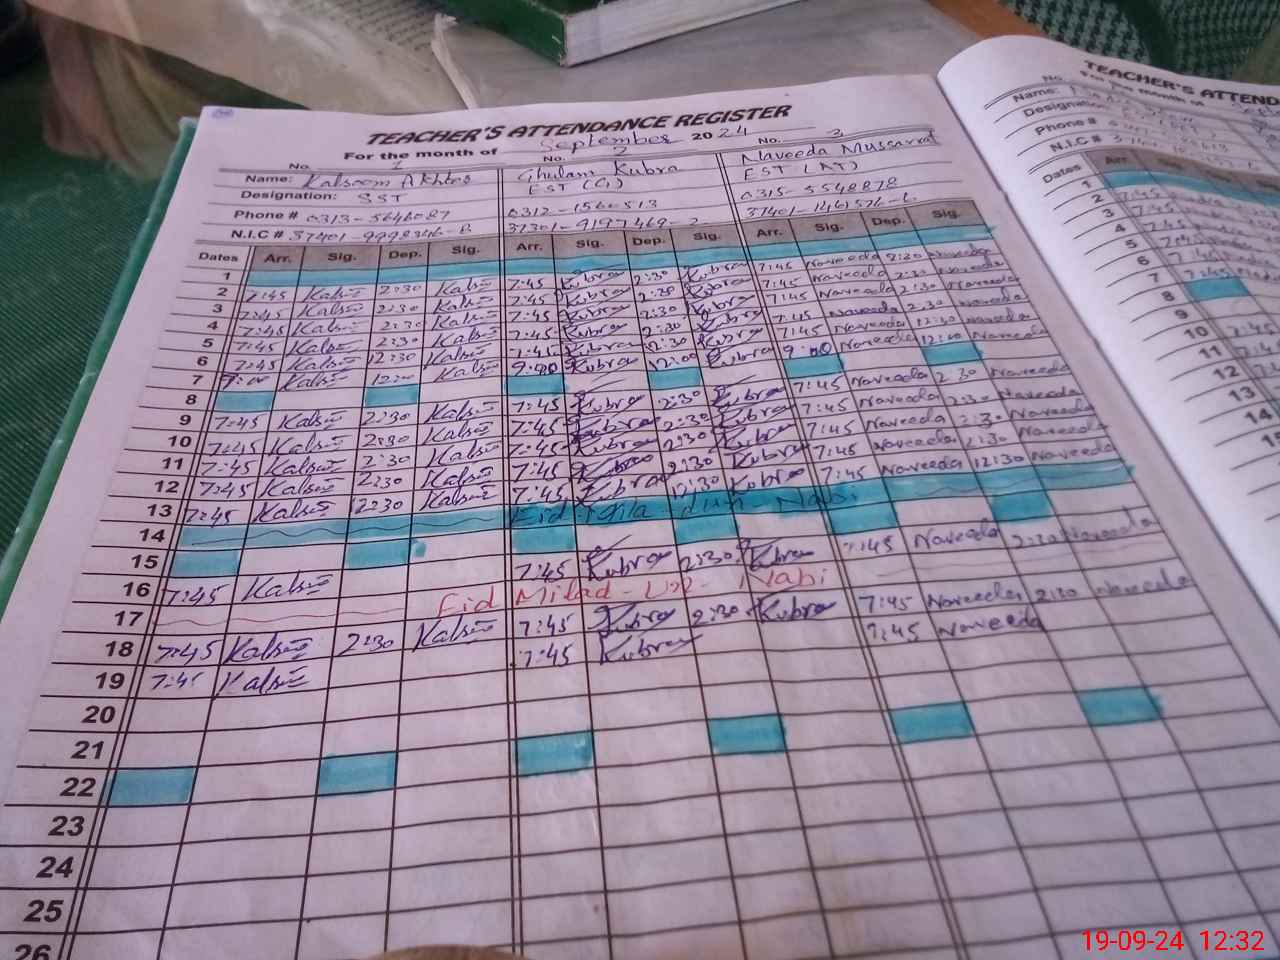 TEACHER'S ATTENDANCE REGISTER
For the month of September 2024
No. 1 No. 2 No. 3
Name: Kalsoom Akhter Ghulam Kubra Naveeda Mussarrat
Designation: SST EST (G) EST (AT)
Phone # 0313-5646087 0312-1560513 0315-5548878
N.I.C #
Dates Arr. Sig. Dep. Sig. Arr. Sig. Dep. Sig. Arr. Sig. Dep. Sig.
1
2 7:45 Kalsoom 2:30 Kalsoom 7:45 Kubra 2:30 Kubra 7:45 Naveeda 2:30 Naveeda
3 7:45 Kalsoom 2:30 Kalsoom 7:45 Kubra 2:30 Kubra 7:45 Naveeda 2:30 Naveeda
4 7:45 Kalsoom 2:30 Kalsoom 7:45 Kubra 2:30 Kubra 7:45 Naveeda 2:30 Naveeda
5 7:45 Kalsoom 2:30 Kalsoom 7:45 Kubra 2:30 Kubra 7:45 Naveeda 2:30 Naveeda
6 7:45 Kalsoom 12:30 Kalsoom 7:45 Kubra 12:30 Kubra 7:45 Naveeda 12:30 Naveeda
7 Kalsoom 12:00 Kalsoom 9:00 Kubra 12:00 Kubra 9:00 Naveeda 12:00 Naveeda
8
9 7:45 Kalsoom 2:30 Kalsoom 7:45 Kubra 2:30 Kubra 7:45 Naveeda 2:30 Naveeda
10 7:45 Kalsoom 2:30 Kalsoom 7:45 Kubra 2:30 Kubra 7:45 Naveeda 2:30 Naveeda
11 7:45 Kalsoom 2:30 Kalsoom 7:45 Kubra 2:30 Kubra 7:45 Naveeda 2:30 Naveeda
12 7:45 Kalsoom 2:30 Kalsoom 7:45 Kubra 2:30 Kubra 7:45 Naveeda 2:30 Naveeda
13 7:45 Kalsoom 12:30 Kalsoom 7:45 Kubra 12:30 Kubra 7:45 Naveeda 12:30 Naveeda
14 Eid Mila-dun-Nabi
15
16 7:45 Kalsoom 7:45 Kubra 2:30 Kubra 7:45 Naveeda 2:30 Naveeda
17 Eid Milad-Un-Nabi
18 7:45 Kalsoom 2:30 Kalsoom 7:45 Kubra 2:30 Kubra 7:45 Naveeda 2:30 Naveeda
19 7:45 Kalsoom 7:45 Kubra 7:45 Naveeda
20
21
22
23
24
25
26
TEACHER'S ATTENDA
For the month of
No.
Name:
Designation
Phone #
N.I.C #
Dates Arr.
1
2 7:45
3 7:45
4 7:45
5 7:45
6 7:45
7 7:45
8
9
10
11
12
13
14
19-09-24 12:32